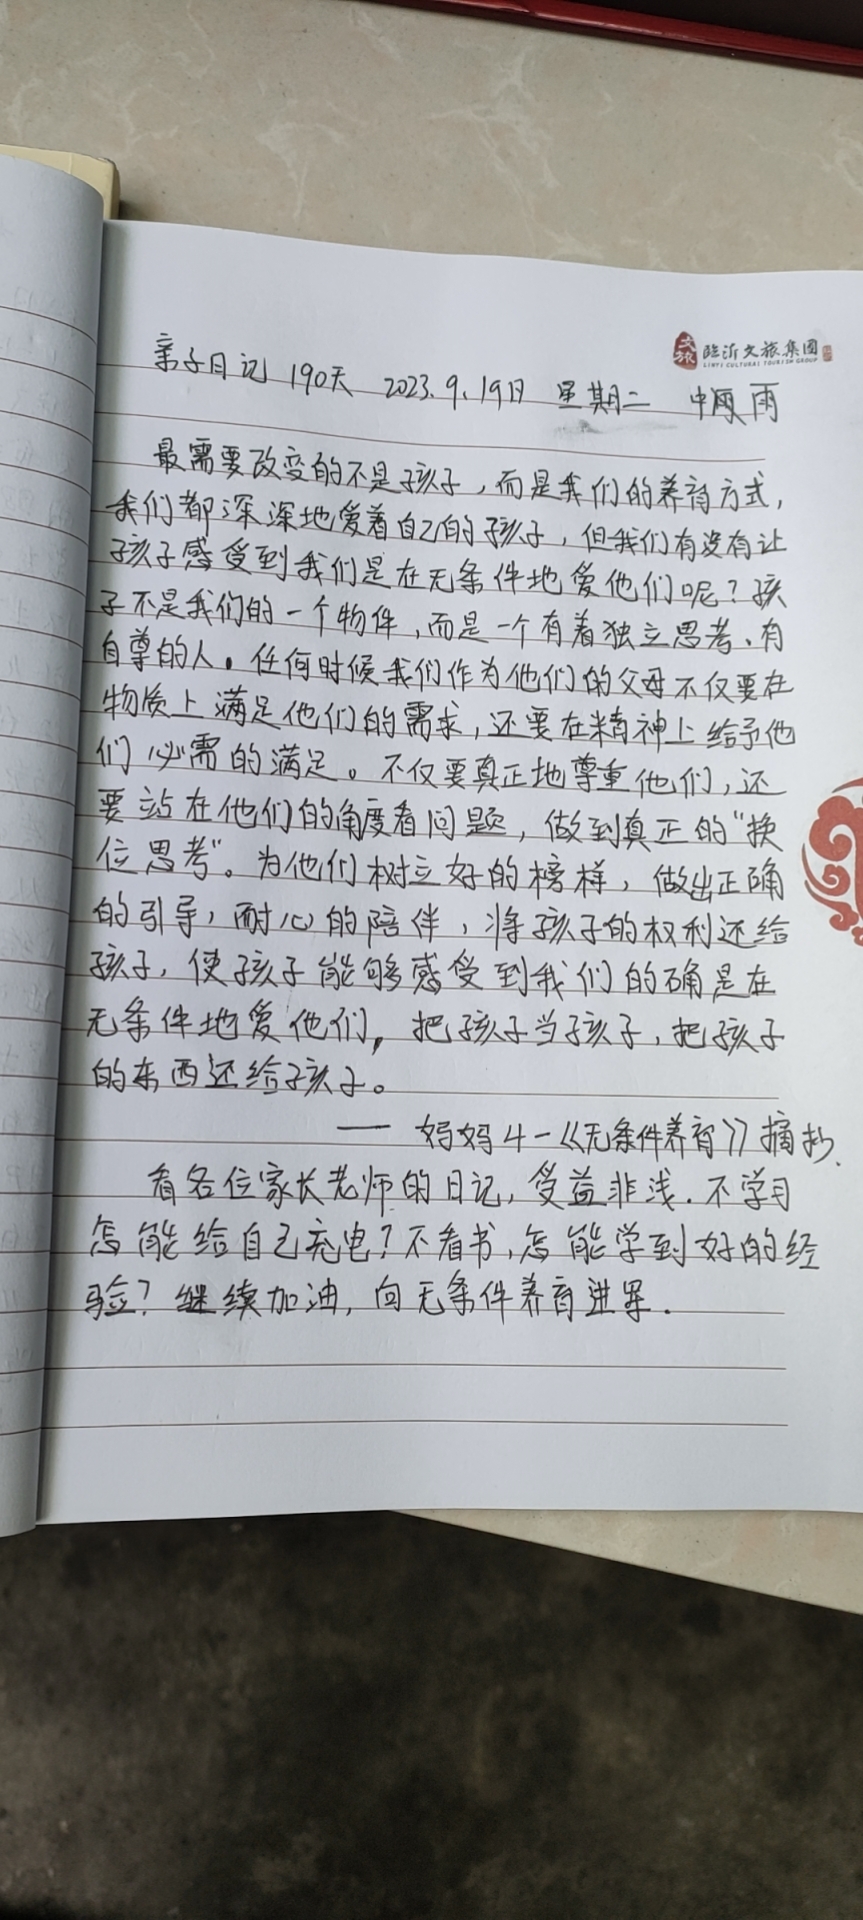 文旅 临沂文旅集团
LINYI CULTURAL TOURISM GROUP
亲子日记 190天 2023.9.19日 星期二 中雨
最需要改变的不是孩子，而是我们的养育方式，
我们都深深地爱着自己的孩子，但我们有没有让
孩子感受到我们是在无条件地爱他们呢？孩
子不是我们的一个物件，而是一个有着独立思考、有
自尊的人。任何时候我们作为他们的父母不仅要在
物质上满足他们的需求，还要在精神上给予他
们必需的满足。不仅要真正地尊重他们，还
要站在他们的角度看问题，做到真正的“换
位思考”。为他们树立好的榜样，做出正确
的引导，耐心的陪伴，将孩子的权利还给
孩子，使孩子能够感受到我们的确是在
无条件地爱他们，把孩子当孩子，把孩子
的东西还给孩子。
—— 妈妈4-《无条件养育》摘抄.
看各位家长老师的日记，受益非浅.不学习
怎能给自己充电？不看书，怎能学到好的经
验？继续加油，向无条件养育进军.